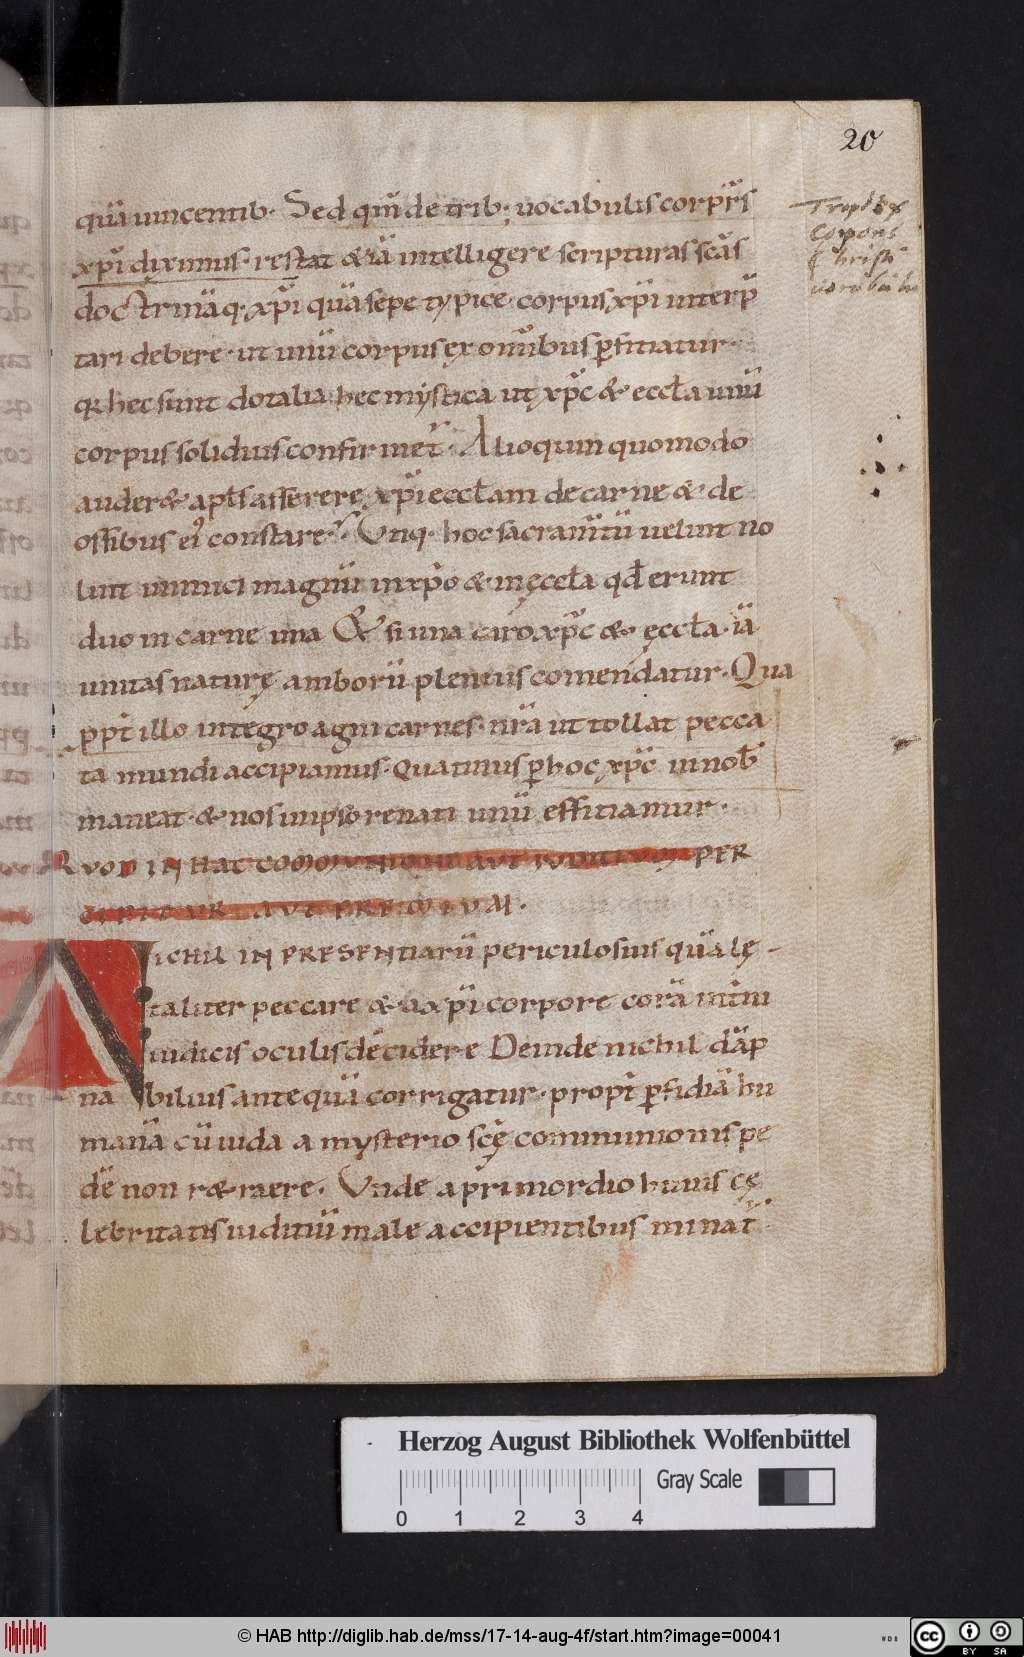 20
quā uincentib· Sed qm̄ de trib; uocabulis corpr̄is
xp̄i diximus· restat & iā intelligere scripturas scās
doctrināq· xp̄i quā sepe typice· corpus xp̄i interp̄
tari debere· ut unū corpus ex om̄ibus ꝑfitiatur·
hec sunt dotalia· hec mystica ut xp̄c & eccła unū
corpus solidius confirmet̄· Alioquin quomodo
auder& apłs asserere xp̄i eccłam de carne & de
ossibus ei᾽ constare? Vtiq· hoc sacram̄tū uelint no
lint inimici magnū in xp̄o & in ęccła qd̄ erunt
duo in carne una & si una caro xp̄c & ęccła· iā
unitas naturę amborū plenius comendatur· Qua
ppt̄ illo integro agni carnes· nr̄ā ut tollat pecca
ta mundi accipiamus· quatinus ꝑ hoc xp̄c in nob̄
maneat· & nos in ipso renati unū effitiamur·
QVOD IN HAC COMMVNIONE AVT IVDITIVM PER
CIPITVR AVT PREMIVM·
NICHIL IN PRESENTIARŪ periculosius quā lę
taliter peccare & a xp̄i corpore corā intm̄i
iudicis oculis decidere Deinde nichil dāp
nabilius antequā corrigatur· propt̄ ꝑfidiā hu
manā cū iuda a mysterio scę communionis pe
dē non r&raere· Vnde a primordio huius cę
lebritatis iuditiū male accipientibus minat̄
Triplex
Corporis
Christi
Herzog August Bibliothek Wolfenbüttel
Gray Scale
0 1 2 3 4
© HAB http://diglib.hab.de/mss/17-14-aug-4f/start.htm?image=00041
WDB
cc BY SA